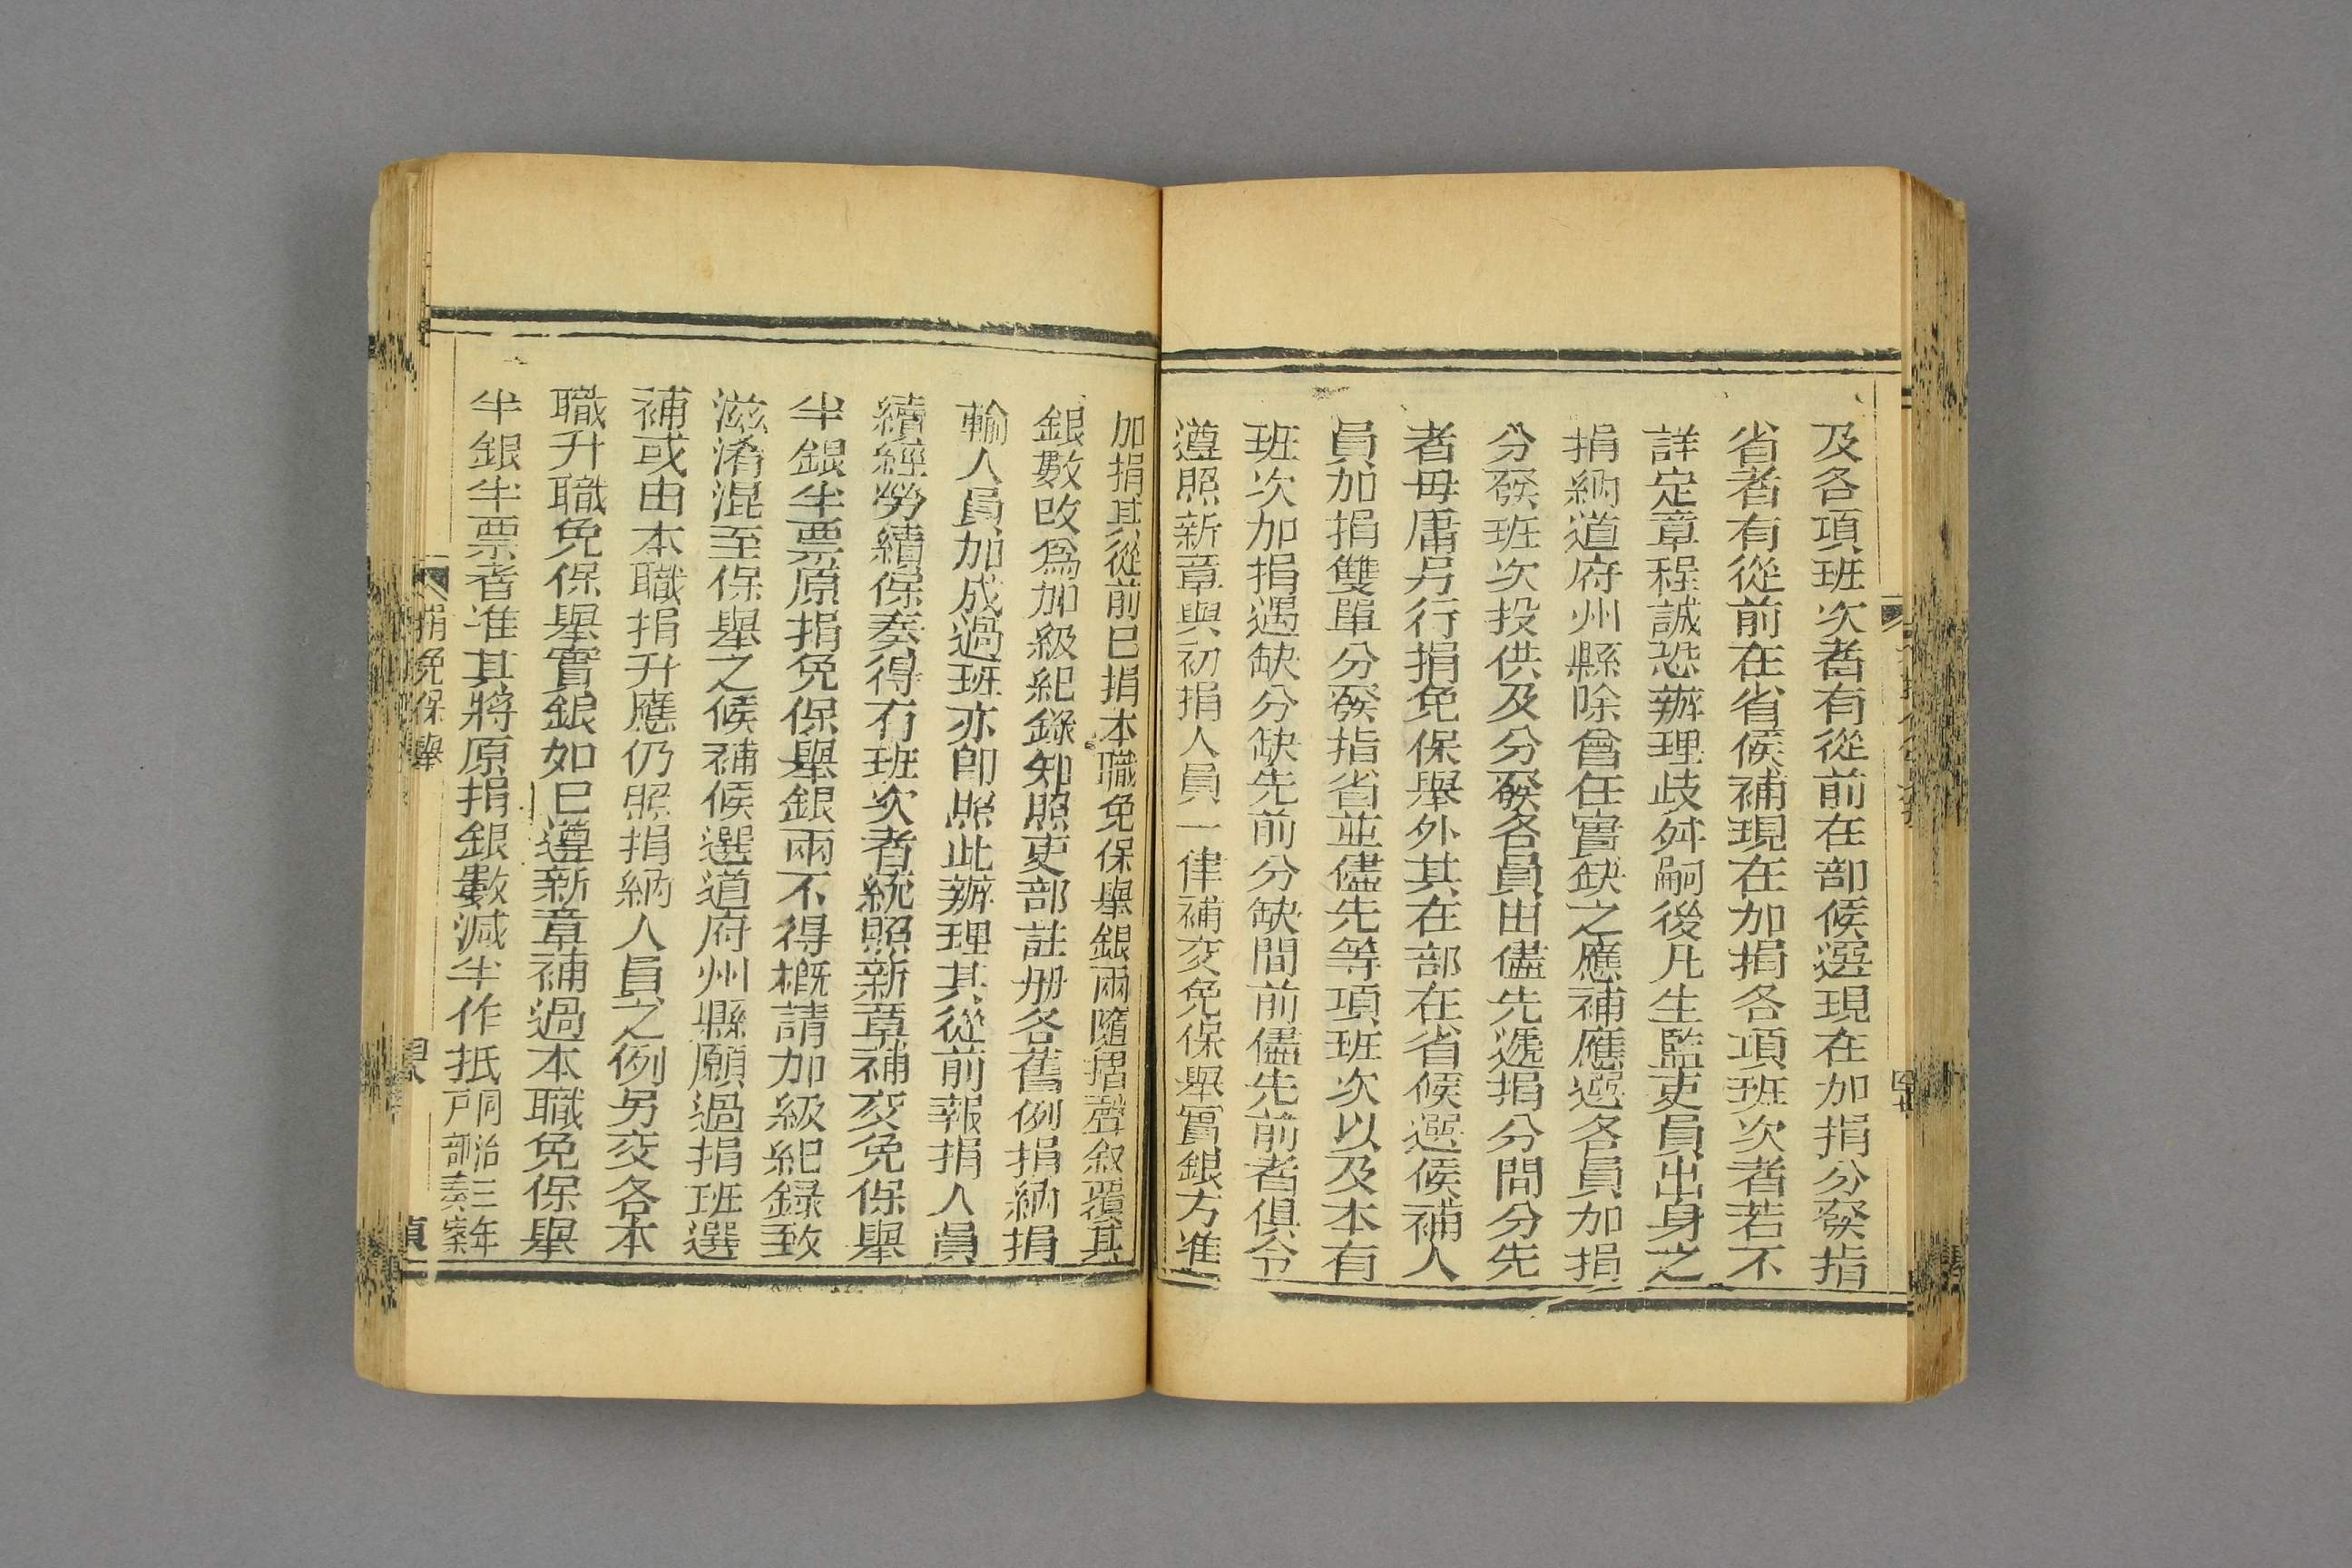 及各項班次者有從前在部候選現在加捐分發指
省者有從前在省候補現在加捐各項班次者若不
詳定章程誠恐辦理歧舛嗣後凡生監吏員出身之
捐納道府州縣除曾任實缺之應補應選各員加捐
分發班次投供及分發各員由儘先遞捐分間分先
者毋庸另行捐免保舉外其在部在省候選候補人
員加捐雙單分發指省並儘先等項班次以及本有
班次加捐遇缺分缺先前分缺間前儘先前者俱令
遵照新章與初捐人員一律補交免保舉實銀方准
加捐其從前已捐本職免保舉銀兩隨摺聲叙覆其
銀數改爲加級紀錄知照吏部註册各舊例捐納捐
輸人員加成過班亦卽照此辦理其從前報捐人員
續經勞績保奏得有班次者統照新章補交免保舉
半銀半票原捐免保舉銀兩不得概請加級紀録致
滋淆混至保舉之候補候選道府州縣願過捐班選
補或由本職捐升應仍照捐納人員之例另交各本
職升職免保舉實銀如已遵新章補過本職免保舉
半銀半票者准其將原捐銀數減半作抵同治三年
戸部奏案
捐免保舉